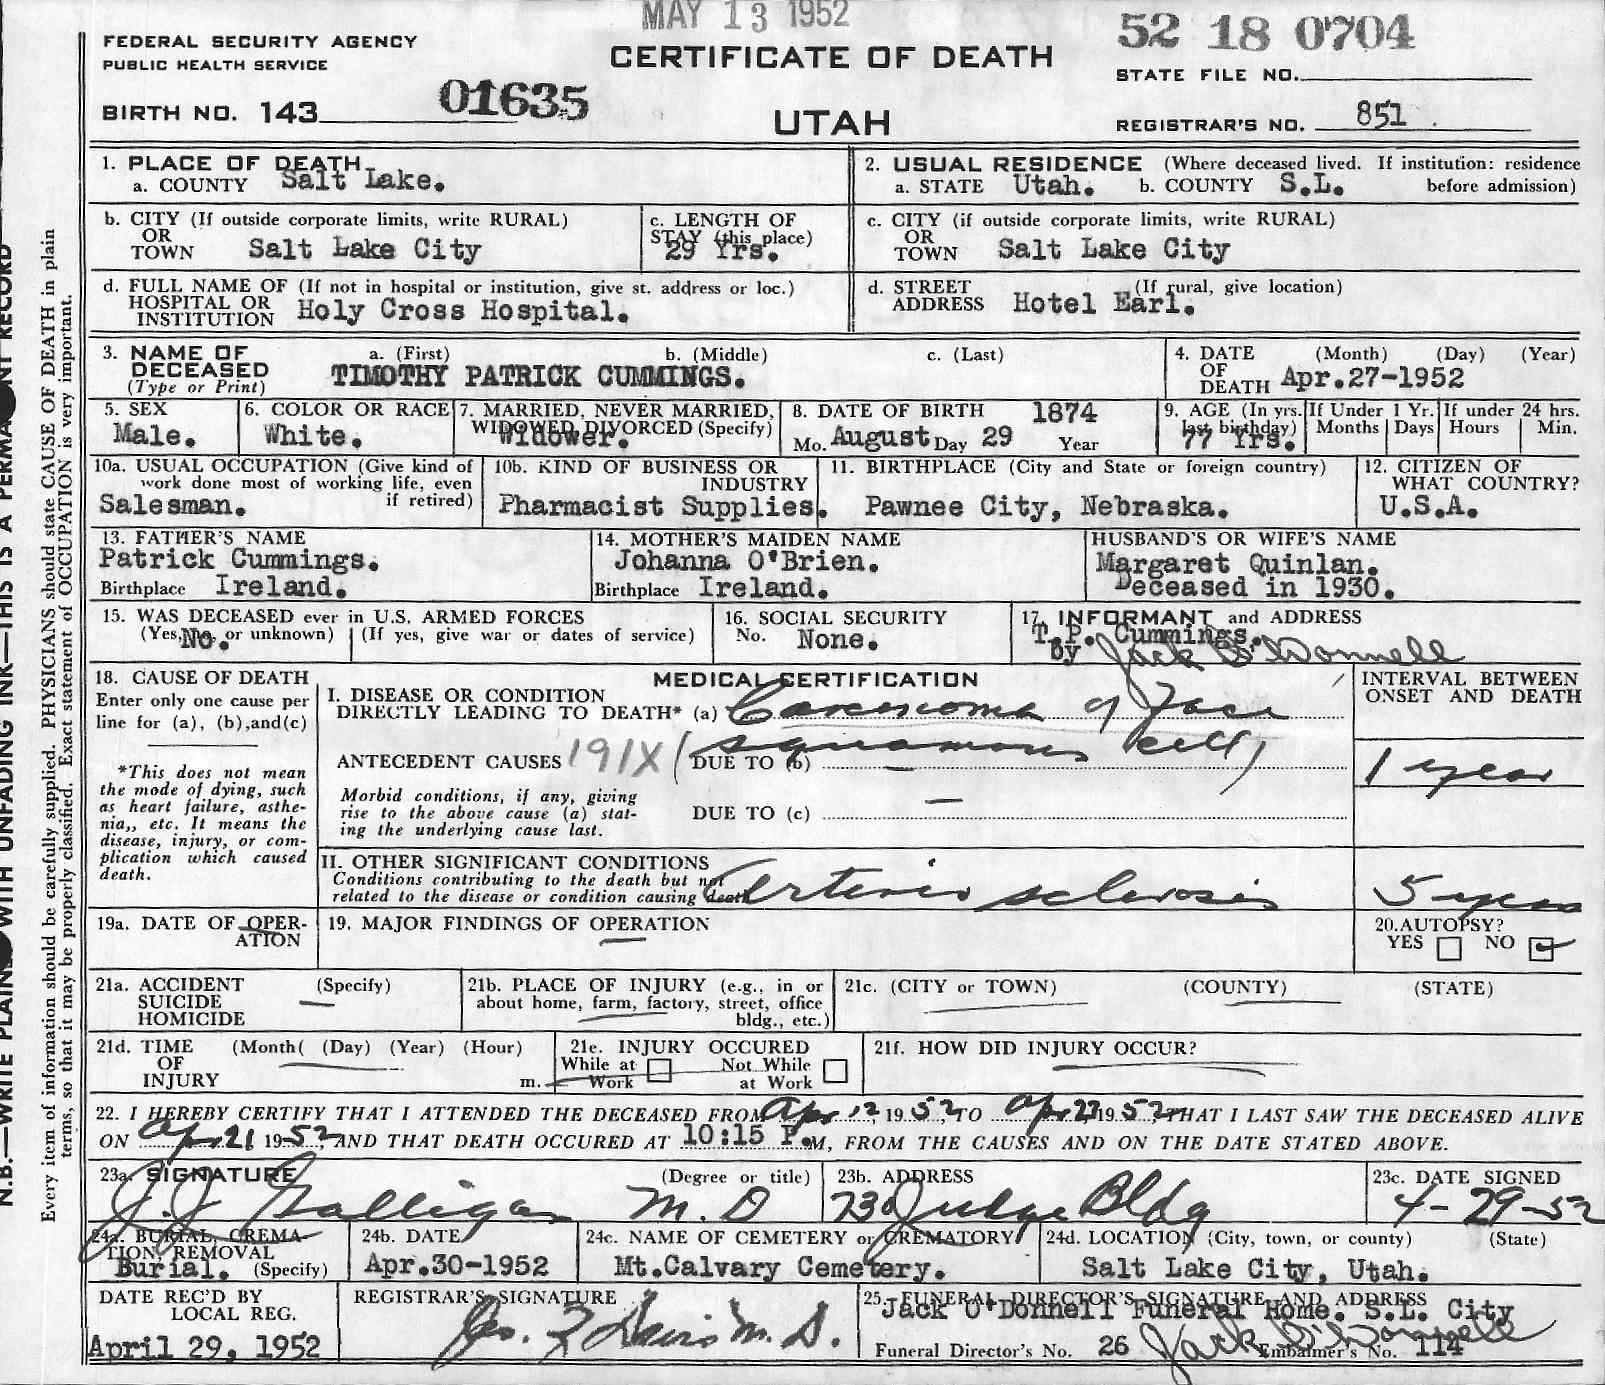 MAY 13 1952
52 18 0704
FEDERAL SECURITY AGENCY
PUBLIC HEALTH SERVICE
CERTIFICATE OF DEATH
STATE FILE NO.
BIRTH NO. 143 01635
UTAH
REGISTRAR'S NO. 851
N.B.—WRITE PLAINLY WITH UNFADING INK—THIS IS A PERMANENT RECORD
Every item of information should be carefully supplied. PHYSICIANS should state CAUSE OF DEATH in plain
terms, so that it may be properly classified. Exact statement of OCCUPATION is very important.
1. PLACE OF DEATH
a. COUNTY Salt Lake.
2. USUAL RESIDENCE (Where deceased lived. If institution: residence
a. STATE Utah. b. COUNTY S.L. before admission)
b. CITY (If outside corporate limits, write RURAL)
OR
TOWN Salt Lake City
c. LENGTH OF
STAY (this place)
29 Yrs.
c. CITY (if outside corporate limits, write RURAL)
OR
TOWN Salt Lake City
d. FULL NAME OF (If not in hospital or institution, give st. address or loc.)
HOSPITAL OR
INSTITUTION Holy Cross Hospital.
d. STREET (If rural, give location)
ADDRESS Hotel Earl.
3. NAME OF a. (First) b. (Middle) c. (Last)
DECEASED
(Type or Print) TIMOTHY PATRICK CUMMINGS.
4. DATE (Month) (Day) (Year)
OF
DEATH Apr.27-1952
5. SEX
Male.
6. COLOR OR RACE
White.
7. MARRIED, NEVER MARRIED,
WIDOWED, DIVORCED (Specify)
Widower.
8. DATE OF BIRTH 1874
Mo. August Day 29 Year
9. AGE (In yrs.
last birthday)
77 Yrs.
If Under 1 Yr.
Months Days
If under 24 hrs.
Hours Min.
10a. USUAL OCCUPATION (Give kind of
work done most of working life, even
if retired)
Salesman.
10b. KIND OF BUSINESS OR
INDUSTRY
Pharmacist Supplies.
11. BIRTHPLACE (City and State or foreign country)
Pawnee City, Nebraska.
12. CITIZEN OF
WHAT COUNTRY?
U.S.A.
13. FATHER'S NAME
Patrick Cummings.
Birthplace Ireland.
14. MOTHER'S MAIDEN NAME
Johanna O'Brien.
Birthplace Ireland.
HUSBAND'S OR WIFE'S NAME
Margaret Quinlan.
Deceased in 1930.
15. WAS DECEASED ever in U.S. ARMED FORCES
(Yes, No, or unknown) (If yes, give war or dates of service)
No.
16. SOCIAL SECURITY
No. None.
17. INFORMANT and ADDRESS
T.P. Cummings.
By Jack O'Donnell
18. CAUSE OF DEATH
Enter only one cause per
line for (a), (b),and(c)
*This does not mean
the mode of dying, such
as heart failure, asthe-
nia,, etc. It means the
disease, injury, or com-
plication which caused
death.
MEDICAL CERTIFICATION
I. DISEASE OR CONDITION
DIRECTLY LEADING TO DEATH* (a) Carcinoma of Face
(squamous cell)
ANTECEDENT CAUSES 191X DUE TO (b) —
Morbid conditions, if any, giving
rise to the above cause (a) stat-
ing the underlying cause last.
DUE TO (c) —
INTERVAL BETWEEN
ONSET AND DEATH
1 year
II. OTHER SIGNIFICANT CONDITIONS
Conditions contributing to the death but not
related to the disease or condition causing death
Arterio sclerosis
5 years
19a. DATE OF OPER-
ATION
19. MAJOR FINDINGS OF OPERATION
20.AUTOPSY?
YES NO
21a. ACCIDENT (Specify)
SUICIDE
HOMICIDE
21b. PLACE OF INJURY (e.g., in or
about home, farm, factory, street, office
bldg., etc.)
21c. (CITY or TOWN) (COUNTY) (STATE)
21d. TIME (Month( (Day) (Year) (Hour)
OF
INJURY m.
21e. INJURY OCCURED
While at Work Not While at Work
21f. HOW DID INJURY OCCUR?
22. I HEREBY CERTIFY THAT I ATTENDED THE DECEASED FROM Apr 12, 1952, TO Apr 27 1952, THAT I LAST SAW THE DECEASED ALIVE
ON Apr 21 1952 AND THAT DEATH OCCURED AT 10:15 P.M, FROM THE CAUSES AND ON THE DATE STATED ABOVE.
23a. SIGNATURE (Degree or title)
J.J. Galligan M.D
23b. ADDRESS
730 Judge Bldg
23c. DATE SIGNED
4-29-52
24a. BURIAL, CREMA-
TION, REMOVAL
Burial. (Specify)
24b. DATE
Apr.30-1952
24c. NAME OF CEMETERY or CREMATORY
Mt.Calvary Cemetery.
24d. LOCATION (City, town, or county) (State)
Salt Lake City, Utah.
DATE REC'D BY
LOCAL REG.
April 29, 1952
REGISTRAR'S SIGNATURE
Geo. Davis M.D.
25. FUNERAL DIRECTOR'S SIGNATURE AND ADDRESS
Jack O'Donnell Funeral Home. S.L. City
Jack O'Donnell
Funeral Director's No. 26 Embalmer's No. 114